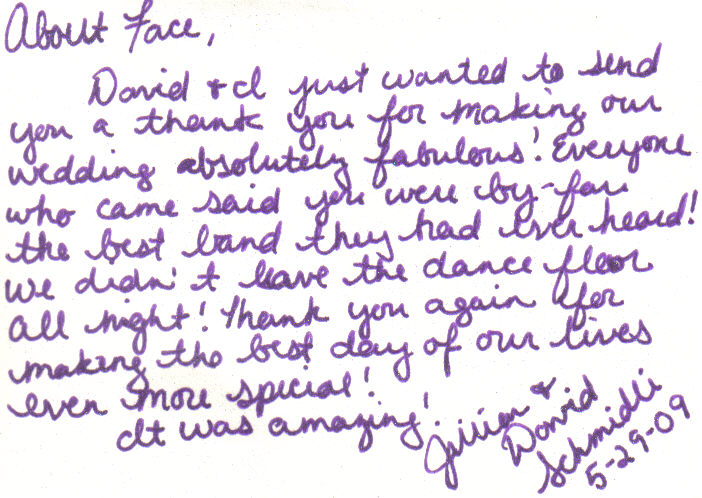 About Face,
David + I just wanted to send
you a thank you for making our
wedding absolutely fabulous! Everyone
who came said you were by-far
the best band they had ever heard!
We didn't leave the dance floor
all night! Thank you again for
making the best day of our lives
even more special!
It was amazing!
Jillian +
David
Schmidli
5-29-09